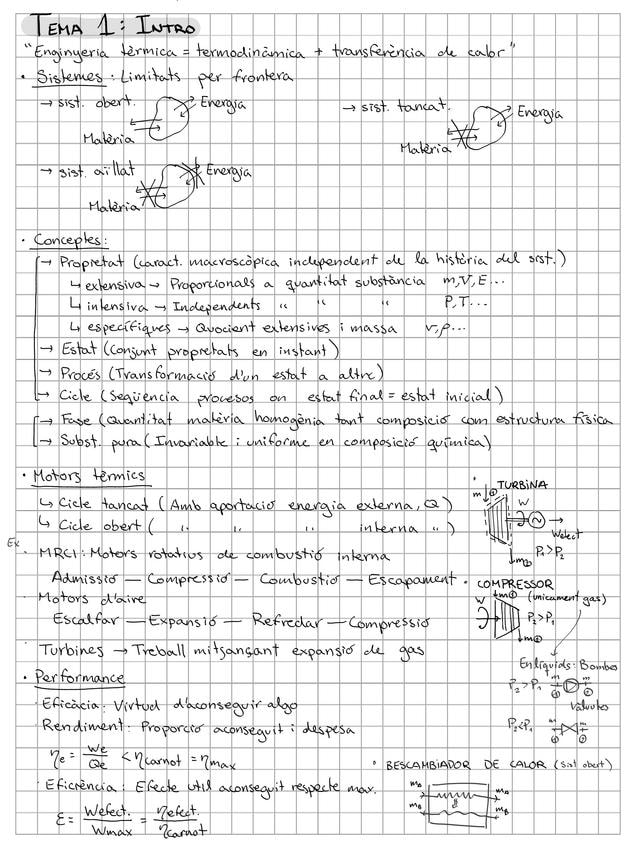 TEMA 1: INTRO
"Enginyeria tèrmica = termodinàmica + transferència de calor"
· Sistemes: Limitats per frontera
→ sist. obert.
Energia
Matèria
→ sist. tancat.
Energia
Matèria
→ sist. aïllat
Energia
Matèria
· Conceptes:
→ Propietat (caract. macroscòpica independent de la història del sist.)
↳ extensiva → Proporcionals a quantitat substància m,V,E...
↳ intensiva → Independents " " " P,T...
↳ específiques → Quocient extensives i massa v,ρ...
→ Estat (Conjunt propietats en instant)
→ Procés (Transformació d'un estat a altre)
→ Cicle (Seqüència processos on estat final = estat inicial)
→ Fase (Quantitat matèria homogènia tant composició com estructura física
→ Subst. pura (Invariable i uniforme en composició química)
· Motors tèrmics
↳ Cicle tancat (Amb aportació energia externa, Q)
↳ Cicle obert ( " " " interna " )
Ex.
· MRCI: Motors rotatius de combustió interna
Admissió — Compressió — Combustió — Escapament
· Motors d'aire
Escalfar — Expansió — Refredar — Compressió
· Turbines → Treball mitjançant expansió de gas
· TURBINA
ṁ ①
W
Welect
P₁>P₂
ṁ②
· COMPRESSOR
(unicament gas)
ṁ①
W
P₂>P₁
ṁ②
En líquids: Bombes
P₂>P₁
ṁ ṁ
① ②
Vàlvules
P₂<P₁
ṁ ṁ
① ②
· Performance
· Eficàcia: Virtud d'aconseguir algo
· Rendiment: Proporció aconseguit i despesa
ηe = We/Qe < ηcarnot = ηmax
· Eficiència: Efecte util aconseguit respecte max.
ε = Wefect./Wmax = ηefect./ηcarnot
· BESCAMBIADOR DE CALOR (sist obert)
ṁA ṁA
ṁB ṁB